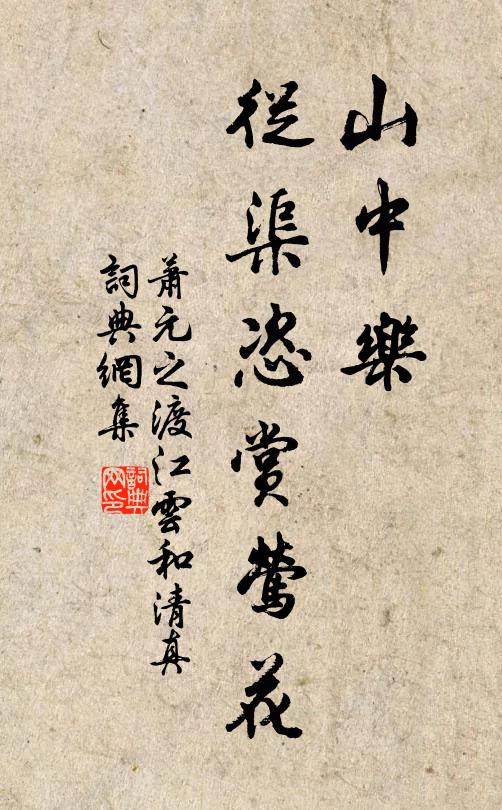 山中樂
從渠恣賞鶯花
蕭元之渡江雲和清真
詞典網集
詞典网印